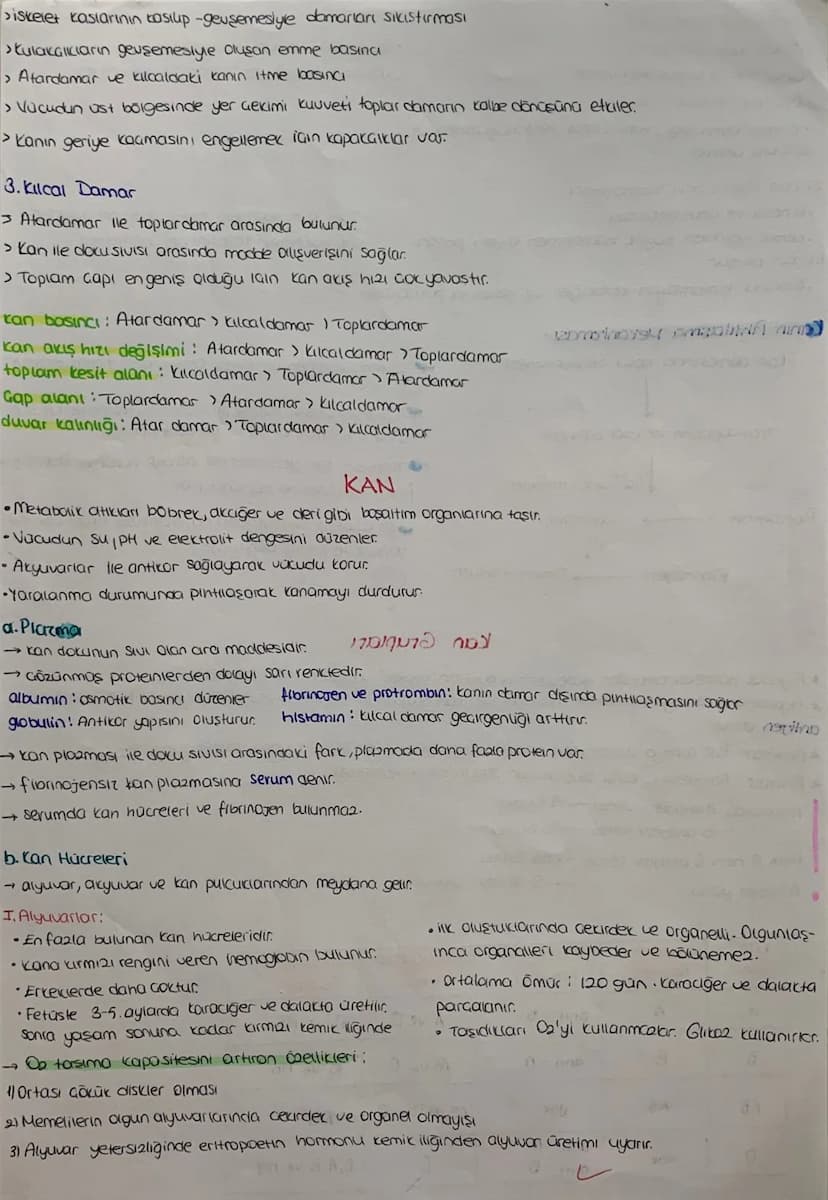 > iskelet kaslarının kasılıp -gevşemesiyle damarları sıkıştırması
> kulakçıkların gevşemesiyle oluşan emme basıncı
> Atardamar ve kılcaldaki kanın itme basıncı
> Vücudun üst bölgesinde yer çekimi kuvveti toplardamarın kalbe dönüşünü etkiler.
> Kanın geriye kaçmasını engellemek için kapakçıklar var.
3. Kılcal Damar
> Atardamar ile toplardamar arasında bulunur.
> Kan ile doku sıvısı arasında madde alışverişini sağlar.
> Toplam çapı en geniş olduğu için kan akış hızı çok yavaştır.
kan basıncı : Atardamar > kılcaldamar > Toplardamar
kan akış hızı değişimi : Atardamar > kılcaldamar > Toplardamar
toplam kesit alanı : kılcaldamar > Toplardamar > Atardamar
Çap alanı : Toplardamar > Atardamar > kılcaldamar
duvar kalınlığı : Atar damar > Toplardamar > kılcaldamar
KAN
• Metabolik atıkları böbrek, akciğer ve deri gibi boşaltım organlarına taşır.
• Vücudun su, pH ve elektrolit dengesini düzenler.
• Akyuvarlar ile antikor sağlayarak vücudu korur.
• Yaralanma durumunda pıhtılaşarak kanamayı durdurur.
a. Plazma
→ kan dokunun sıvı olan ara maddesidir.
→ Çözünmüş proteinlerden dolayı sarı renktedir.
albumin : osmotik basıncı düzenler fibrinojen ve protrombin : kanın damar dışında pıhtılaşmasını sağlar
globulin : Antikor yapısını oluşturur. histamin : kılcal damar geçirgenliği arttırır.
→ kan plazması ile doku sıvısı arasındaki fark, plazmada daha fazla protein var.
→ fibrinojensiz kan plazmasına serum denir.
→ serumda kan hücreleri ve fibrinojen bulunmaz.
b. Kan Hücreleri
→ alyuvar, akyuvar ve kan pulcuklarından meydana gelir.
I. Alyuvarlar:
• En fazla bulunan kan hücreleridir.
• kana kırmızı rengini veren hemoglobin bulunur.
• Erkeklerde daha çoktur.
• Fetüste 3-5. aylarda karaciğer ve dalakta üretilir.
sonra yaşam sonuna kadar kırmızı kemik iliğinde
• ilk oluştuklarında çekirdek ve organelli. Olgunlaş-
ınca organelleri kaybeder ve bölünemez.
• ortalama ömür : 120 gün. karaciğer ve dalakta
parçalanır.
• Taşıdıkları O2'yi kullanmazlar. Glikoz kullanırlar.
→ O2 taşıma kapasitesini artıran özellikleri :
1) Ortası çökük diskler olması
2) Memelilerin olgun alyuvarlarında çekirdek ve organel olmayışı
3) Alyuvar yetersizliğinde eritropoetin hormonu kemik iliğinden alyuvar üretimi uyarır.